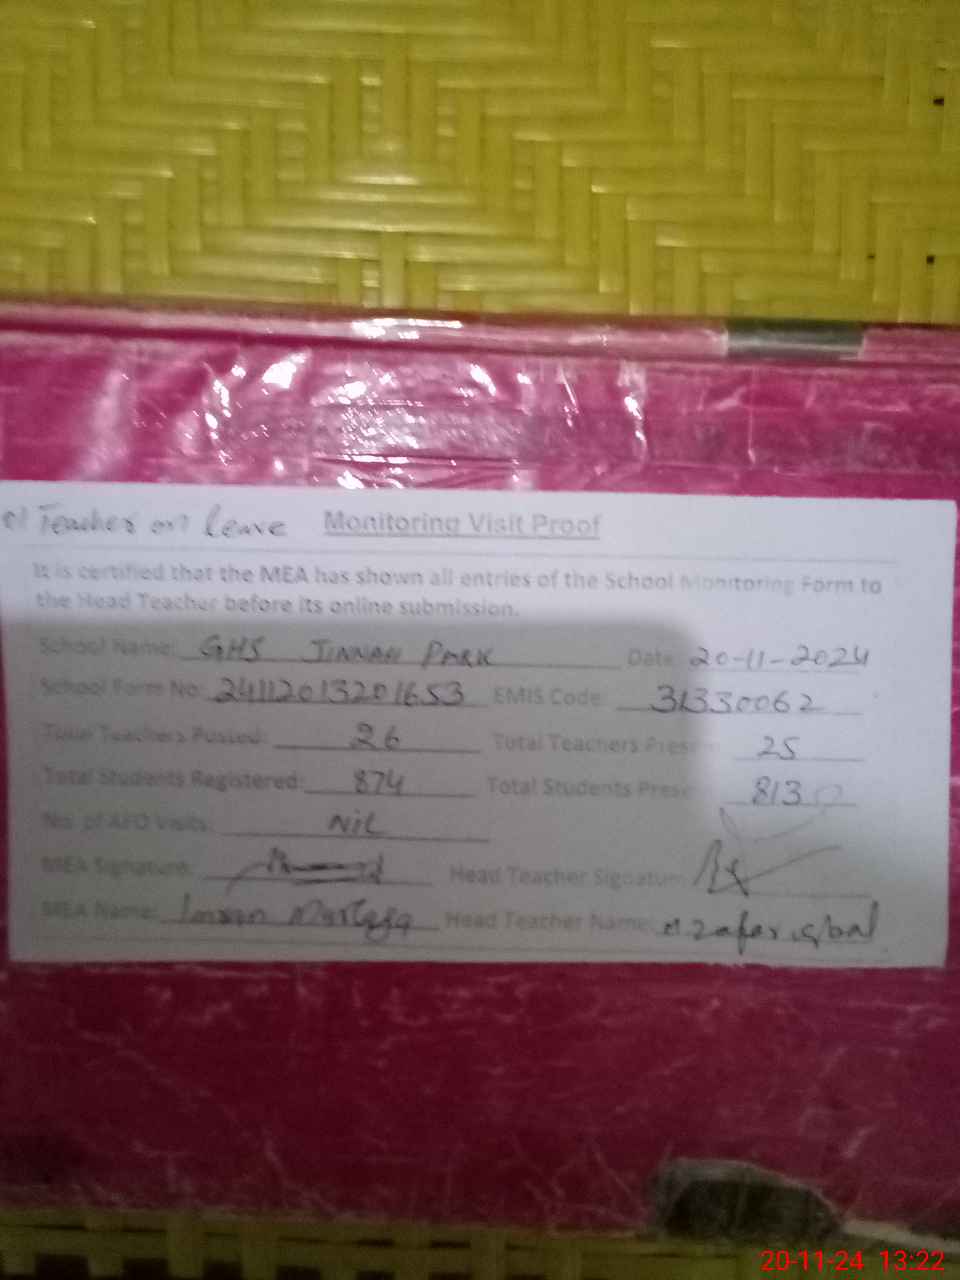 01 Teacher on leave Monitoring Visit Proof
It is certified that the MEA has shown all entries of the School Monitoring Form to
the Head Teacher before its online submission.
School Name: GHS JINNAH PARK Date: 20-11-2024
School Form No: 24112013201653 EMIS Code: 31330062
Total Teachers Posted: 26 Total Teachers Present 25
Total Students Registered: 874 Total Students Prese 813
No. of AEO Visits: Nil
MEA Signature: Head Teacher Signature
MEA Name: Imran Murtaza Head Teacher Name: M. Zafar iqbal
20-11-24 13:22